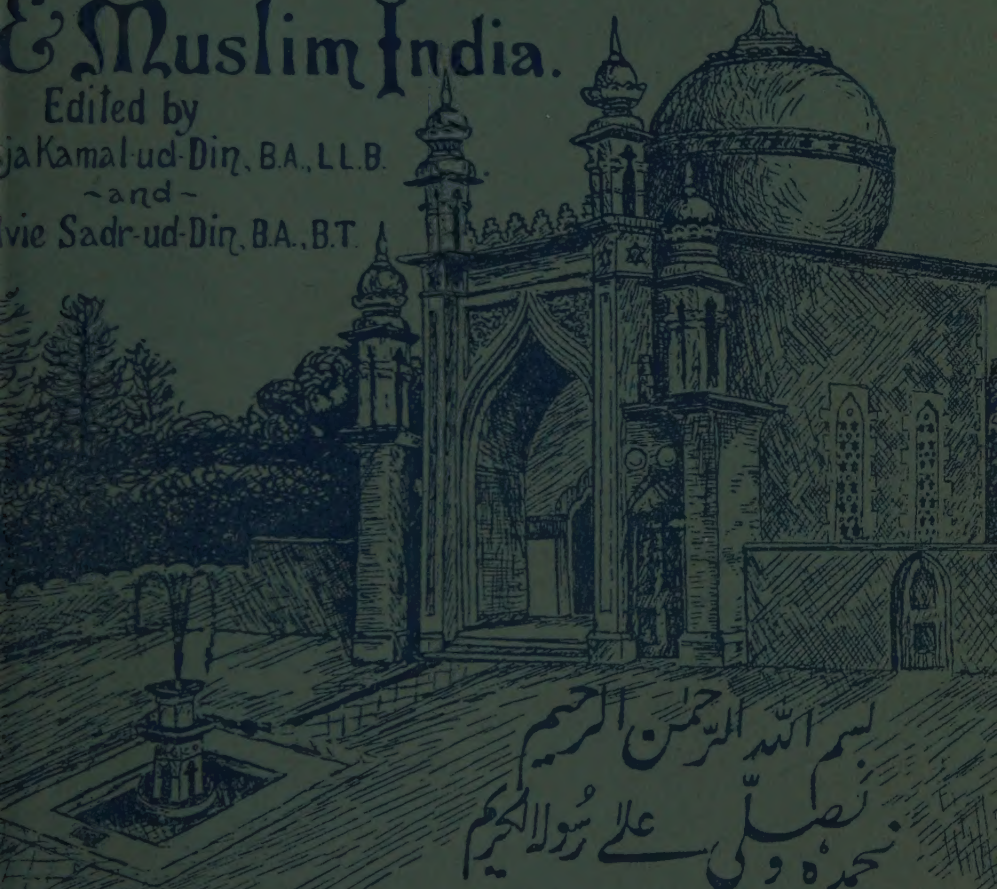 & Muslim India.
Edited by
ja Kamal-ud-Din, B.A., LL.B.
-and-
vie Sadr-ud-Din, B.A., B.T.
بسم الله الرّحمٰن الرحیم
نحمدہ و نصلّی علے رسُولہ الکریم